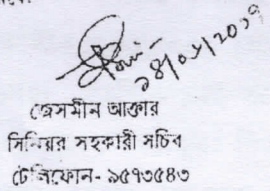 ১৪/০৬/২০১৭
জেসমীন আক্তার
সিনিয়র সহকারী সচিব
টেলিফোন- ৯৫৭৩৫৪৩